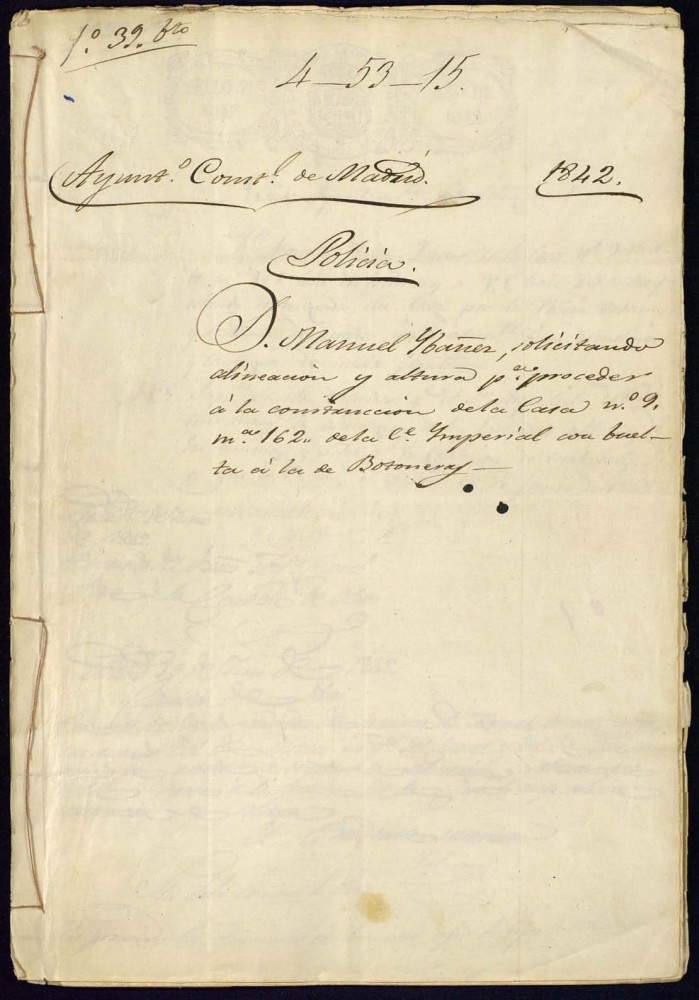 1.º 39. bto
4-53-15.
Ayunt.º Const.l de Madrid. 1842.
Policia.
D. Manuel Ybañez, solicitando
alineacion y altura p.ª proceder
á la construccion de la Casa n.º 9.
m.ª 162,, de la C.e Ymperial con buel-
ta á la de Botoneras—